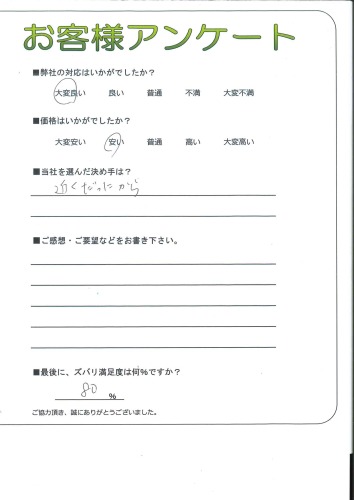 お客様アンケート
■弊社の対応はいかがでしたか？
大変良い 良い 普通 不満 大変不満
■価格はいかがでしたか？
大変安い 安い 普通 高い 大変高い
■当社を選んだ決め手は？
近くだったから
■ご感想・ご要望などをお書き下さい。
■最後に、ズバリ満足度は何％ですか？
80 ％
ご協力頂き、誠にありがとうございました。